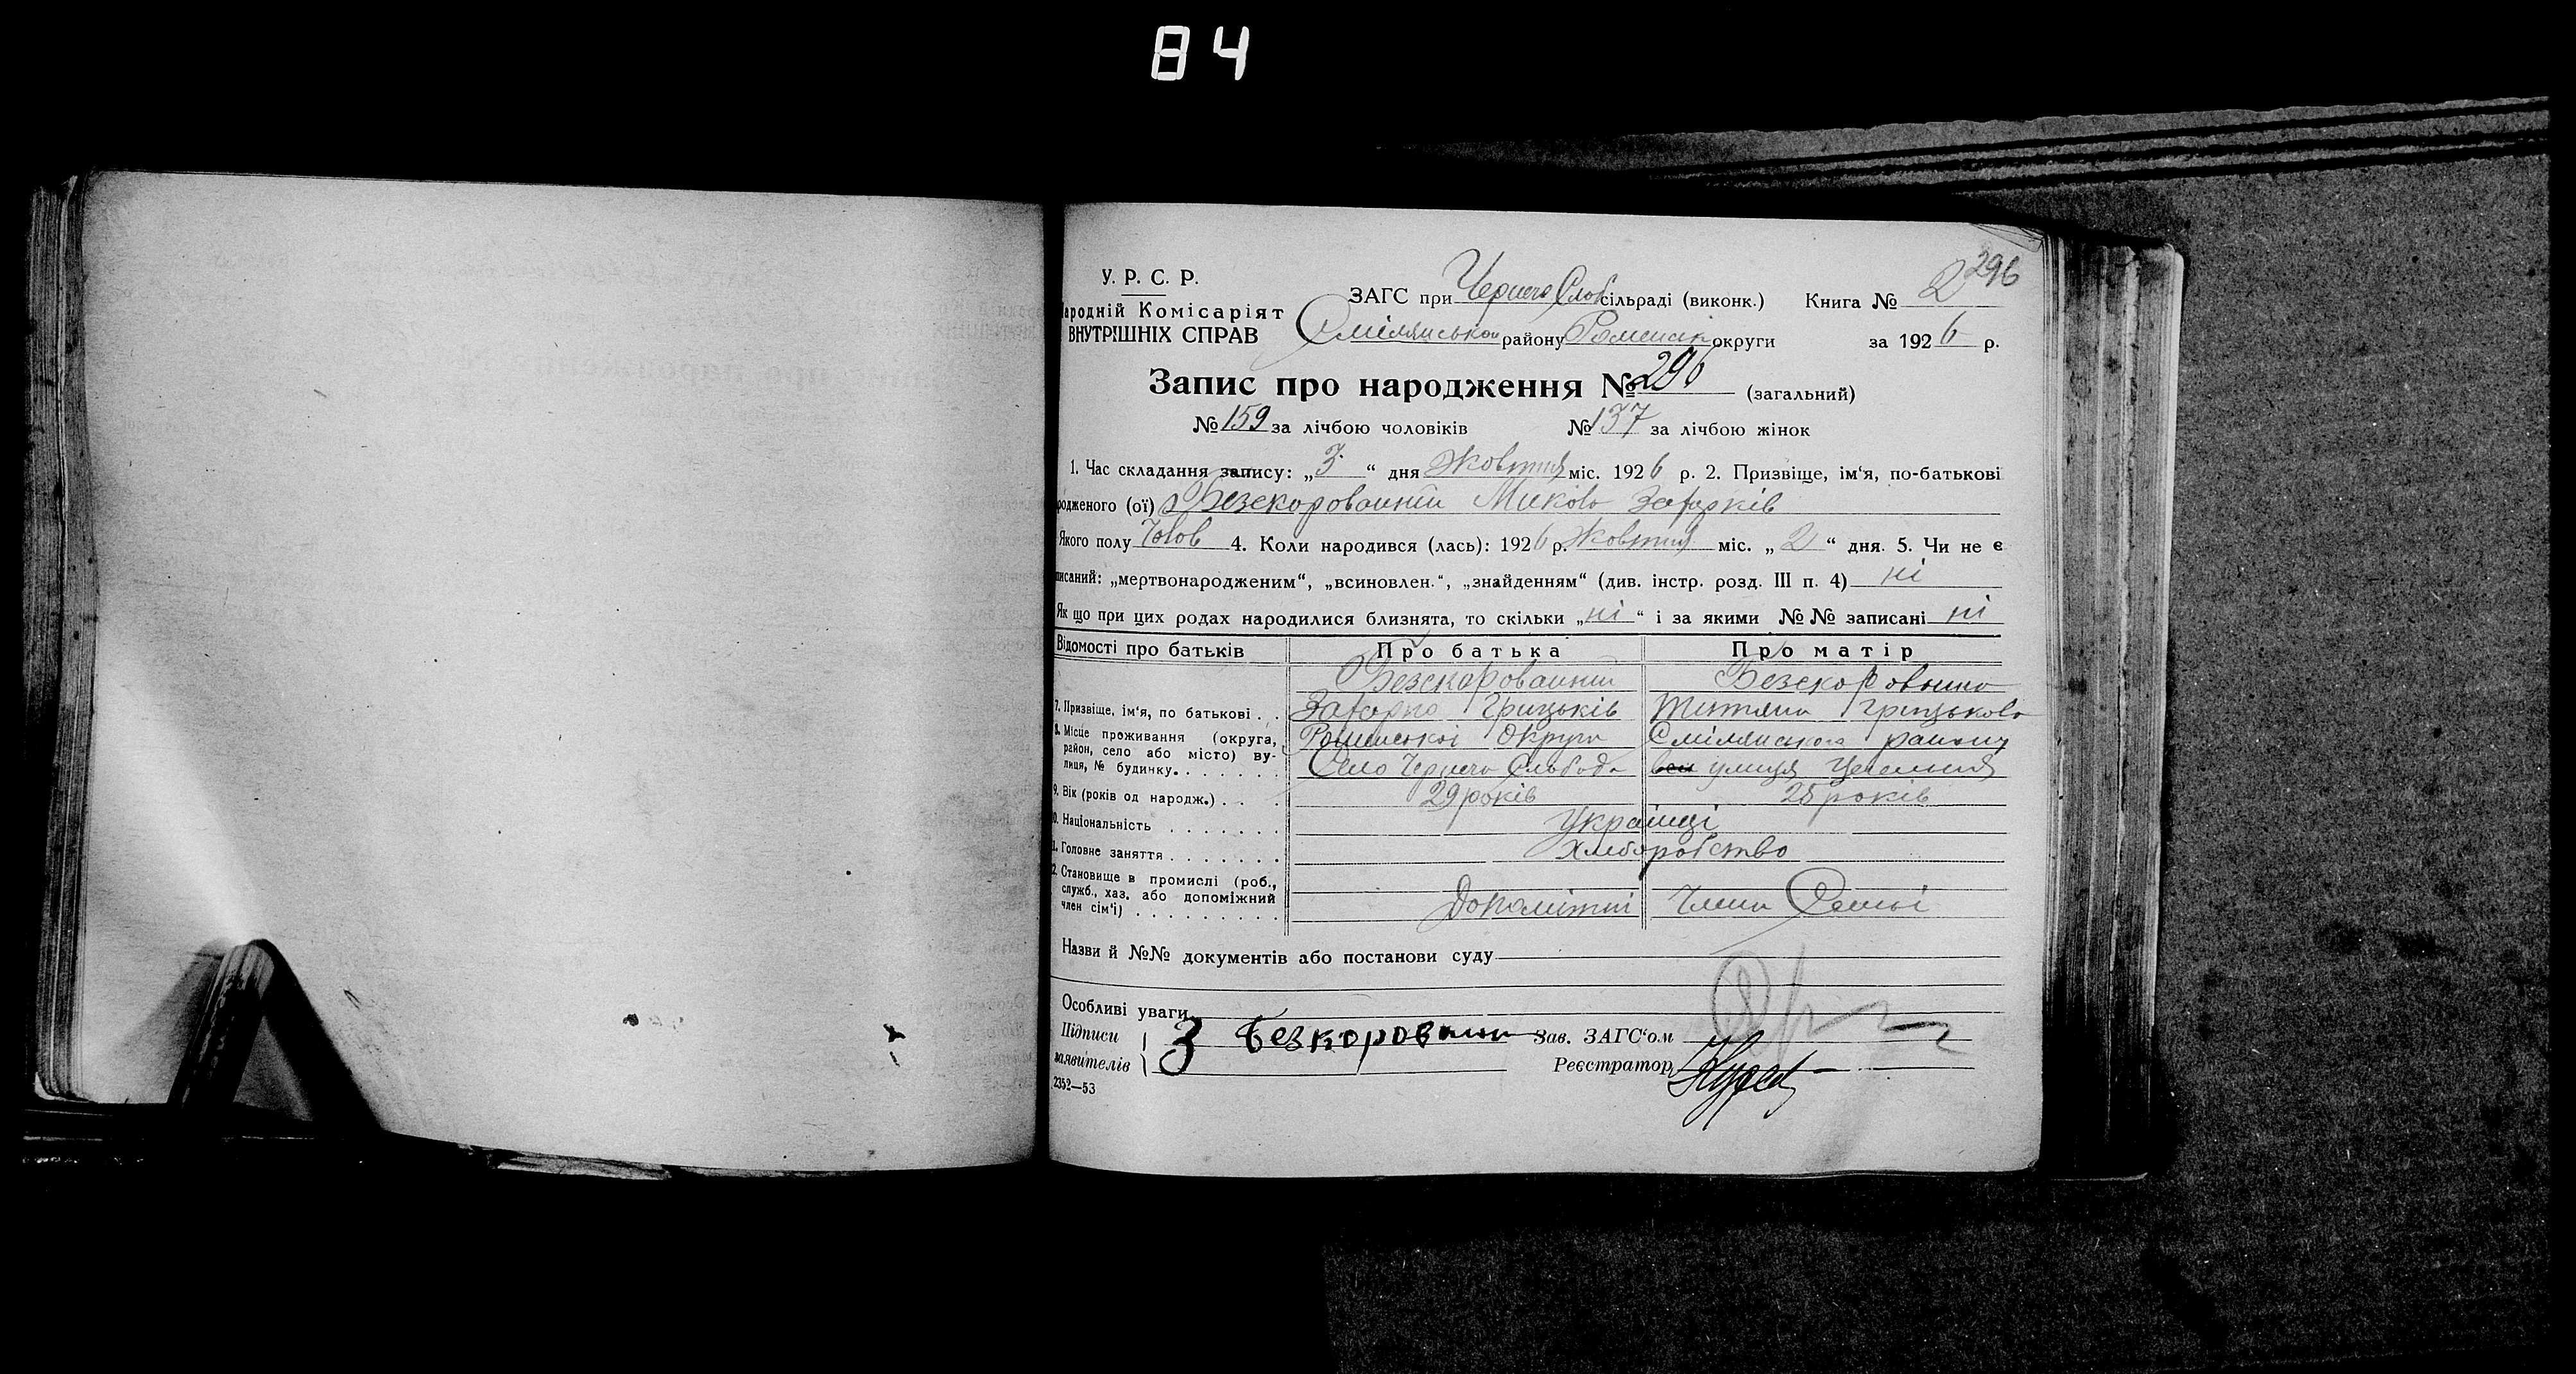 84
296
У. Р. С. Р.
ародній Комісаріят
ВНУТРІШНІХ СПРАВ
ЗАГС при Чернечо Слоб сільраді (виконк.) Книга № 2
Смілянського району Роменськ округи за 1926 р.
Запис про народження № 296 (загальний)
№ 159 за лічбою чоловіків № 137 за лічбою жінок
1. Час складання запису: „3“ дня Жовтня міс. 1926 р. 2. Призвіще, ім'я, по-батькові
родженого (ої) Безскорованний Микола Захарків
Якого полу Чолов 4. Коли народився (лась): 1926 р. Жовтня міс. „2“ дня. 5. Чи не є
писаний: „мертвонародженим“, „всиновлен.“, „знайденням“ (див. інстр. розд. III п. 4) ні
Як що при цих родах народилися близнята, то скільки „ні“ і за якими №№ записані ні
Відомості про батьків Про батька Про матір
Безскорованний Безскоровнина
7. Призвіще, ім'я, по батькові . . Захарко Грицьків Грицькова
8. Місце проживання (округа, район, село або місто) вулиця, № будинку. Роменської Округи Смілянського району
Село Чернеча Слобода улиця
9. Вік (років од народж.) . . . 29 років 25 років
0. Національність . . . . . . . Українці
1. Головне заняття . . . . . . . Хліборобство
2. Становище в промислі (роб.,
служб., хаз. або допоміжний
член сім'ї) . . . . . . . . . Допоміжні Члени Семьі
Назви й №№ документів або постанови суду
Особливі уваги
Підписи З Безкоровани Зав. ЗАГС'ом
заявителів Реєстратор
2352—53